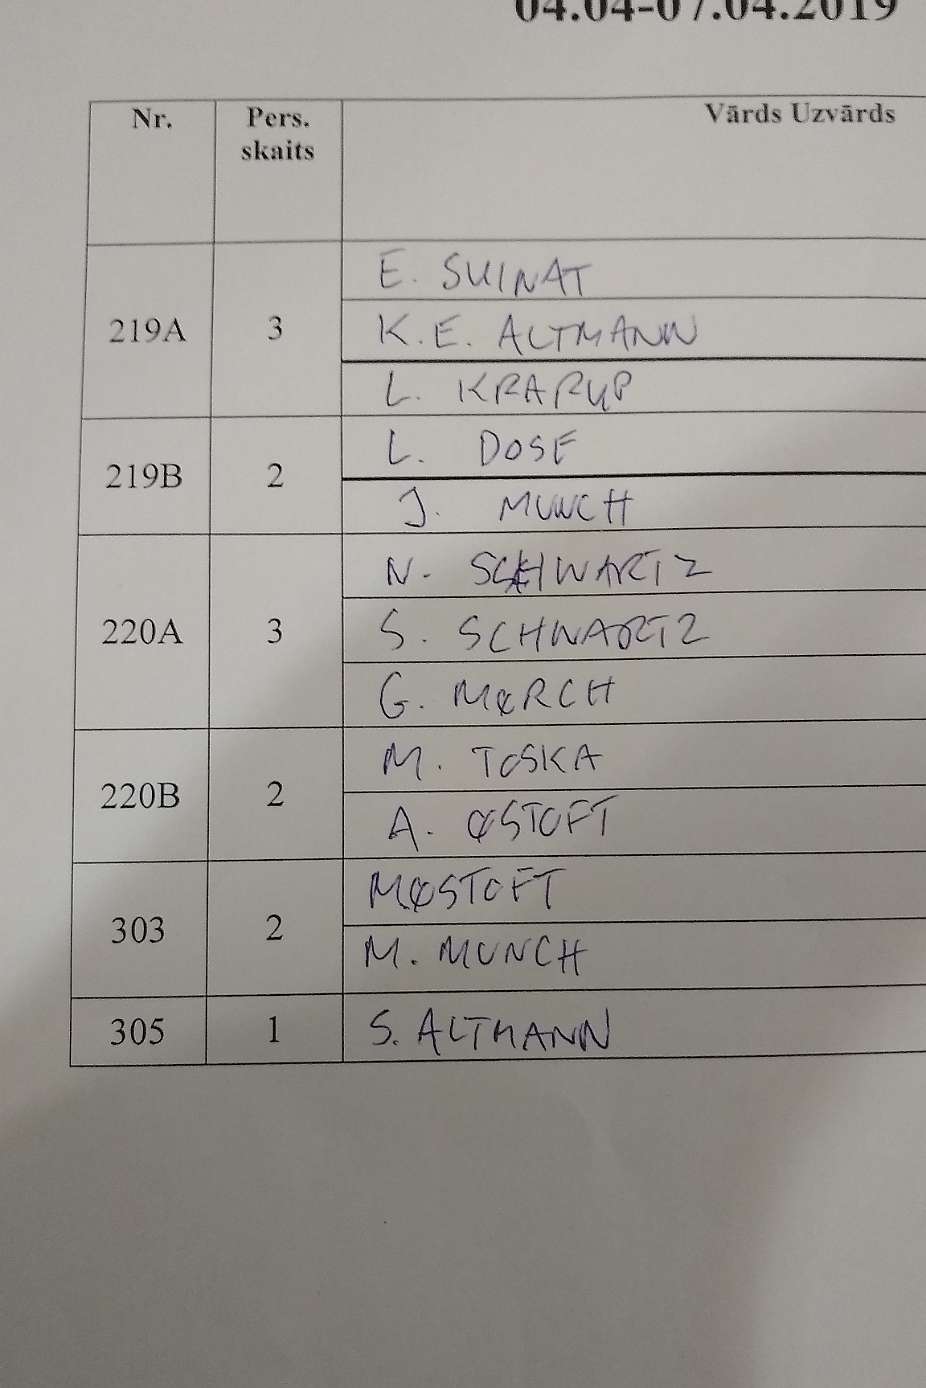 04.04-07.04.2019
Nr. Pers. skaits Vārds Uzvārds
219A 3 E. SUINAT
K.E. ALTMANN
L. KRARUP
219B 2 L. DOSE
J. MUNCH
220A 3 N. SCHWARTZ
S. SCHWARTZ
G. MØRCH
220B 2 M. TOSKA
A. ØSTOFT
303 2 MØSTOFT
M. MUNCH
305 1 S. ALTMANN